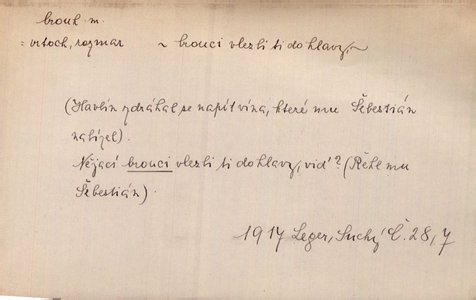 brouk m.
= vrtoch, rozmar ~ brouci vlezli ti do hlavy ~
(Havlín zdráhal se napít vína, které mu Šebestián
nabízel).
Nějací brouci vlezli ti do hlavy, viď? (Řekl mu
Šebestián).
1917 Leger, Suchý Č. 28, 7